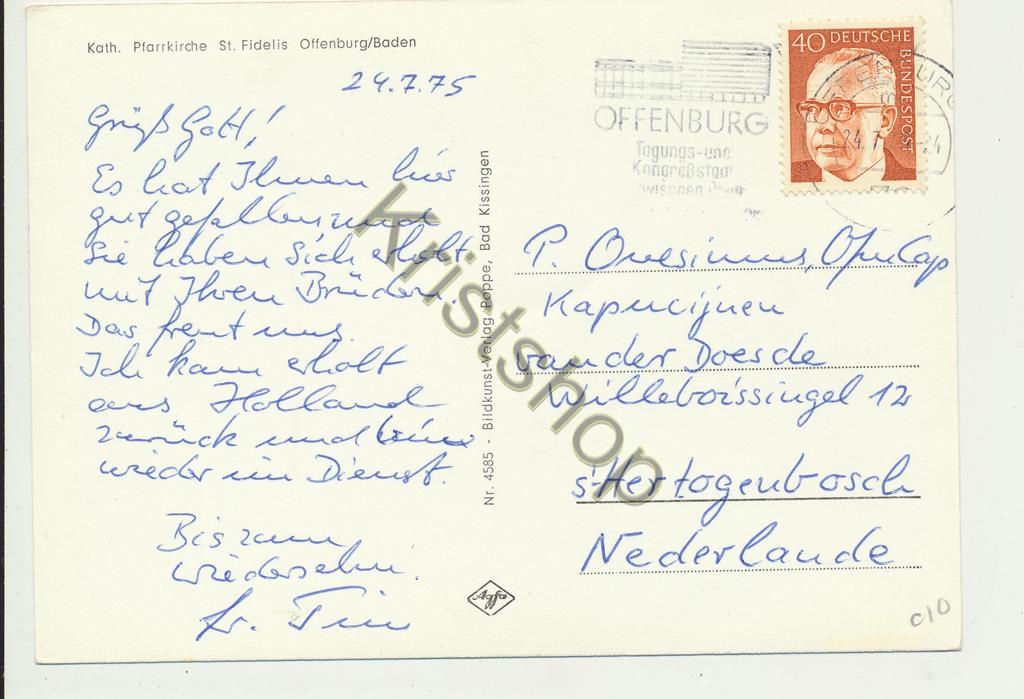 Kath. Pfarrkirche St. Fidelis Offenburg/Baden
24.7.75
Grüß Gott!
Es hat Ihnen hier
gut gefallen, und
Sie haben Sich erholt
mit Ihren Brüdern.
Das freut uns.
Ich kam erholt
aus Holland
zurück und bin
wieder im Dienst.
Bis zum
wiedersehn.
br. Tim
Nr. 4585 - Bildkunst-Verlag Poppe, Bad Kissingen
Agfa
OFFENBURG
Tagungs- und
Kongreßstadt
zwischen
40 DEUTSCHE
BUNDESPOST
24.7
24
P. Onesimus, OfmCap
Kapucijnen
van der Doesde
Willeboissingel 12
s'Hertogenbosch
Nederlande
C10
Kristshop